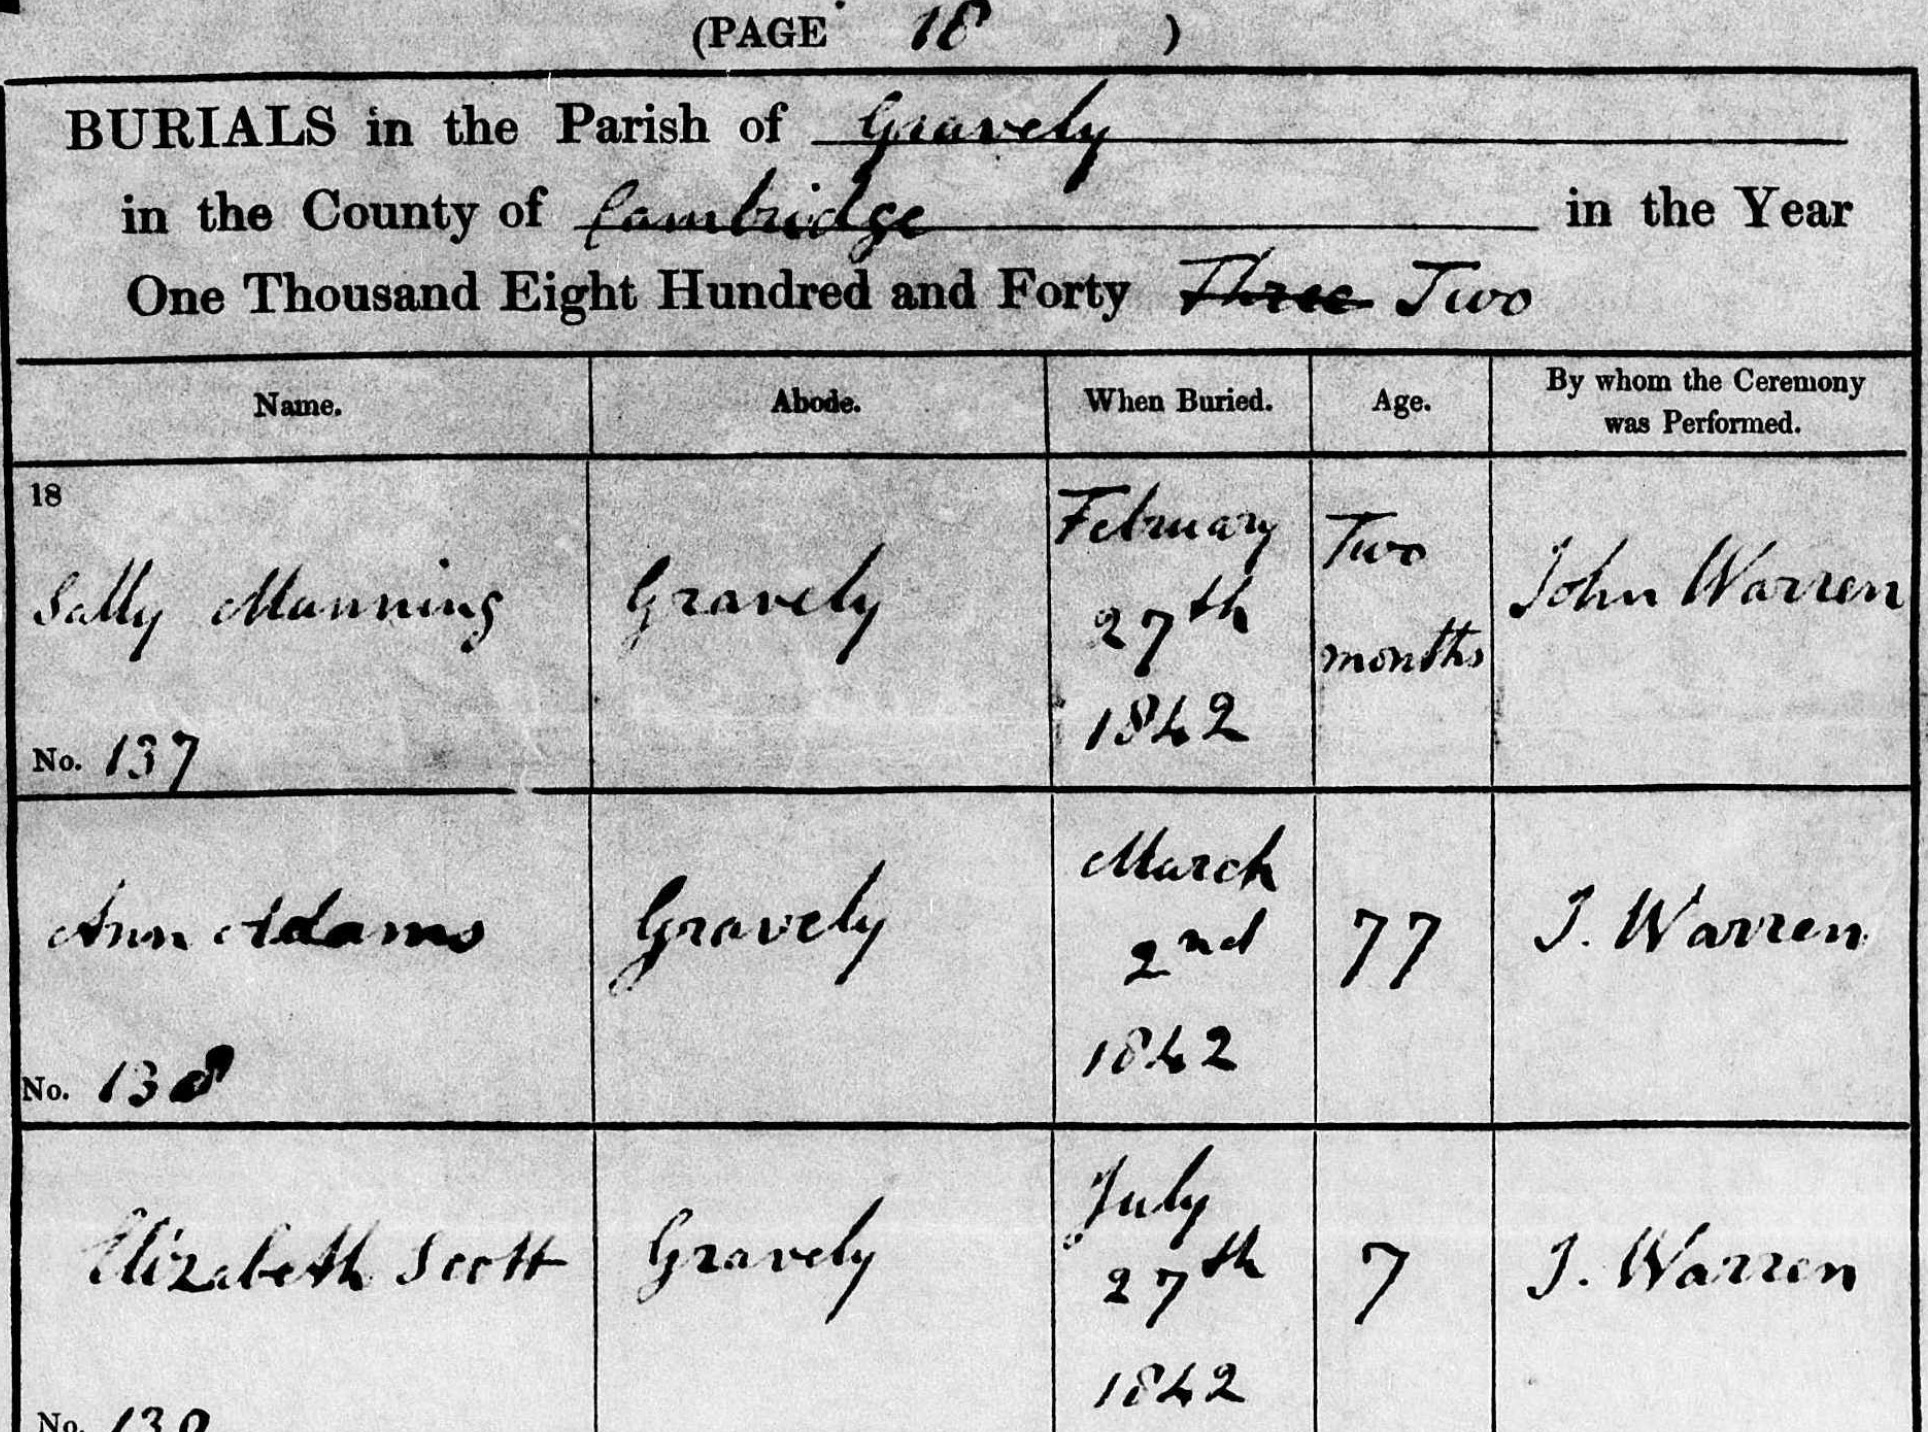 (PAGE 18 )
BURIALS in the Parish of Gravely
in the County of Cambridge in the Year
One Thousand Eight Hundred and Forty Three Two
Name. Abode. When Buried. Age. By whom the Ceremony
was Performed.
18
Sally Manning Gravely February
27th
1842 Two
months John Warren
No. 137
Ann Adams Gravely March
2nd
1842 77 J. Warren
No. 138
Elizabeth Scott Gravely July
27th
1842 7 J. Warren
No. 139